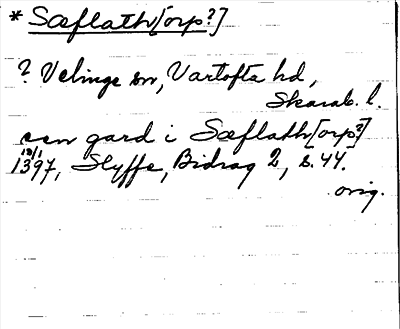 * Sæflath[orp?]
? Velinge sn, Vartofta hd,
Skarab. l.
een gard i Sæflath[orp?]
13/1
1397, Styffe, Bidrag 2, s. 44.
orig.